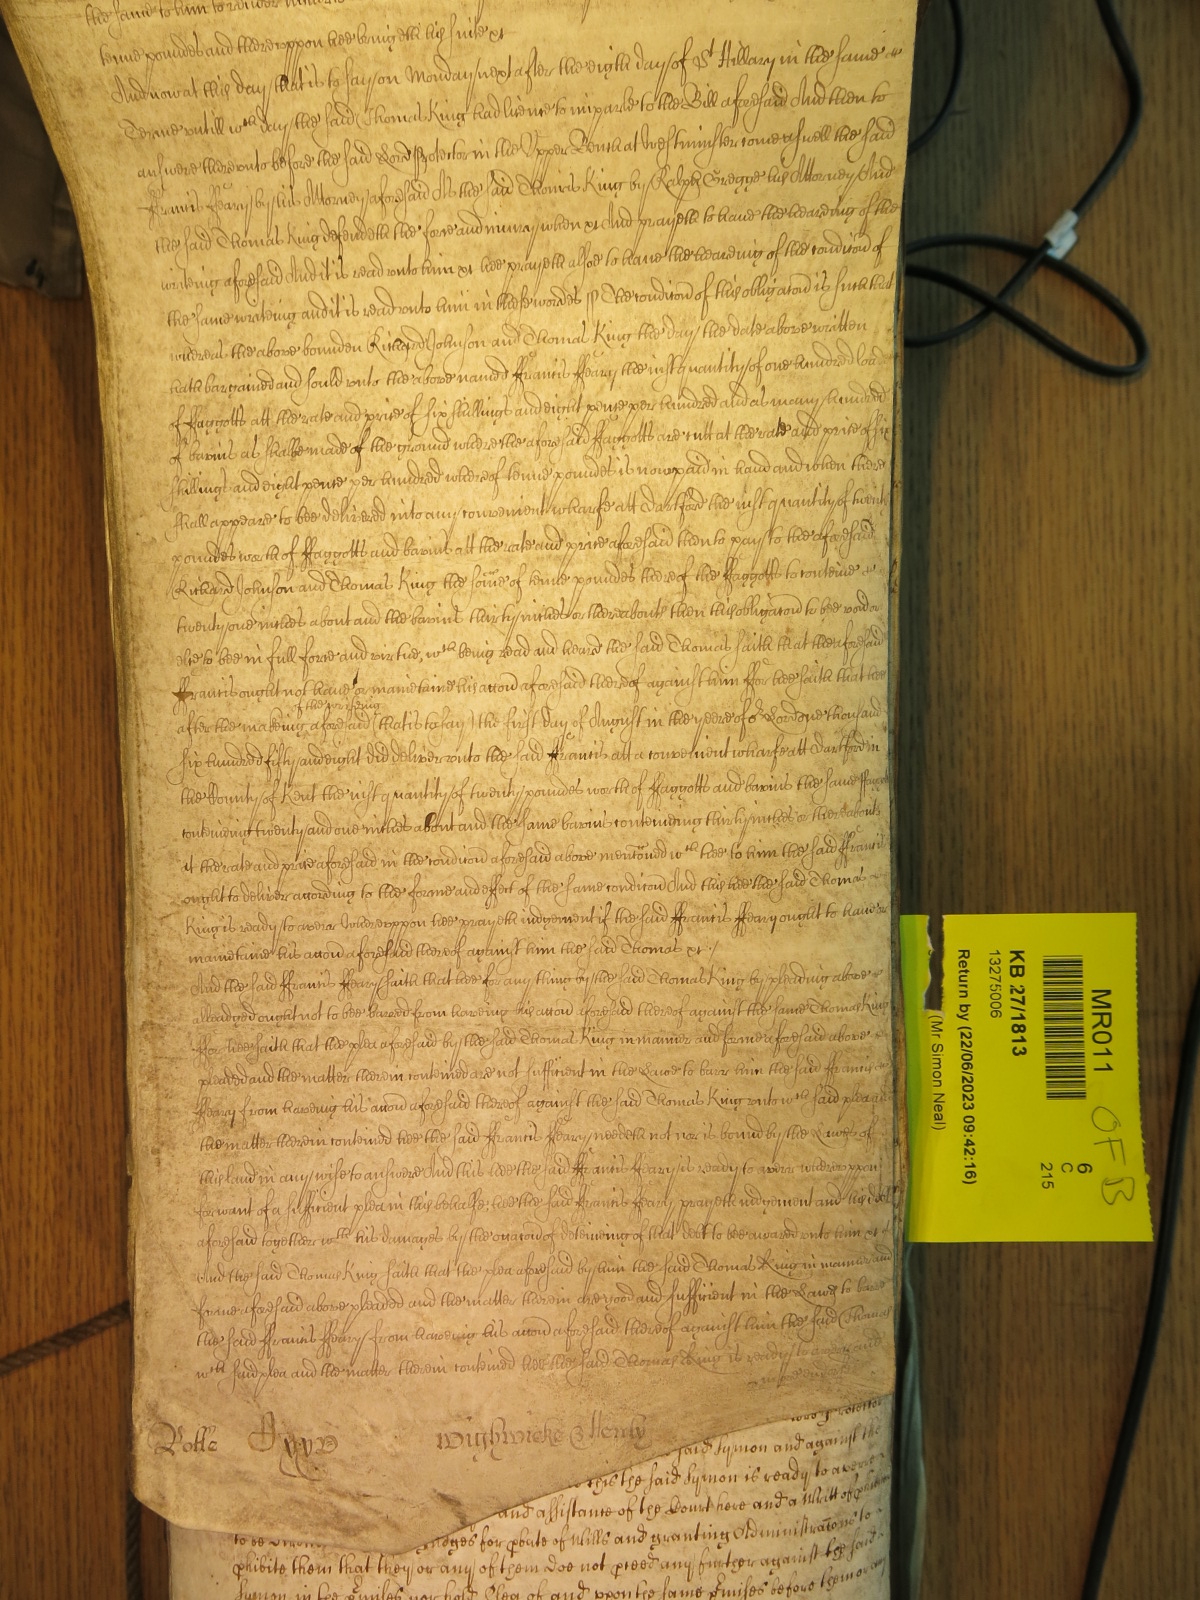 the same to him to render
tenne poundes and thereuppon hee bringeth his suite &c
And now at this day that is to say on Monday next after the eigth day of St Hillary in the same
Terme untill wch day the said Thomas King had licence to imparle to the Bill aforesaid And then to
answere thereunto before the said Lord Protector in the Upper Bench at Westminster come aswell the said
Francis Fleary by his Attorney aforesaid As the said Thomas King by Ralph Gregge his Attorney And
the said Thomas King defendeth the force and iniury when &c And prayeth to have the heareing of the
writeing aforesaid And it is read unto him &c hee prayeth alsoe to have the heareing of the condicon of
the same writeing and it is read unto him in these wordes ss The condicon of this obligacon is such that
whereas the above bounden Richard Johnson and Thomas King the day the date above written
hath bargained and sould unto the above named Francis ffeary the iust quantity of one hundred load
of ffaggotts att the rate and price of six shillings and eight pence per hundred and as many hundred
of bavins as shalbe made of the ground where the aforesaid ffaggotts are cutt at the rate and price of six
shillings and eight pence per hundred whereof tenne poundes is now paid in hand and when there
shall appeare to bee delivered into any convenient wharfe att Dartford the iust quantity of twenty
poundes worth of ffaggotts and bavins att the rate and price aforesaid then to pay to the aforesaid
Richard Johnson and Thomas King the some of tenne poundes thereof the ffaggotts to conteine
twenty one inches about and the bavins thirty inches or thereabouts then this obligacon to bee void or
else to bee in full force and virtue, wch being read and heard the said Thomas saith that the aforesaid
ffrancis ought not have or mainetaine his accon aforesaid thereof against him ffor hee saith that hee
of the writeing
after the makeing aforesaid (that is to say) the first day of August in the yeere of or Lord one thousand
six hundred fifty and eight did deliver unto the said ffrancis att a convenient wharfe att Dartford in
the County of Kent the iust quantity of twenty poundes worth of ffaggotts and bavins the same ffaggotts
conteineing twenty and one inches about and the same bavins conteineing thirty inches or thereabouts
at the rate and price aforesaid in the condicon aforesaid above menconed wch hee to him the said ffrancis
ought to deliver according to the forme and effect of the same condicon And this hee the said Thomas
King is ready to averr Whereuppon hee prayeth iudgement if the said ffrancis ffeary ought to have or
mainetaine his accon aforesaid thereof against him the said Thomas &c
And the said ffrancis ffeary saith that hee for any thing by the said Thomas King by pleading above
alleadged ought not to bee barred from haveing his accon aforesaid thereof against the same Thomas King
ffor hee saith that the plea aforesaid by the said Thomas King in manner and forme aforesaid above
pleaded and the matter therein conteined are not sufficient in the Lawe to barr him the said ffrancis
ffeary from haveing his accon aforesaid thereof against the said Thomas King unto wch said plea and
the matter therein conteined hee the said ffrancis ffeary needeth not nor is bound by the Lawes of
this land in any wise to answere And this hee the said ffrancis ffeary is ready to averr whereuppon
for want of a sufficient plea in this behalfe, hee the said ffrancis ffeary prayeth iudgement and his debt
aforesaid together wth his damages by the occacon of deteineing of that debt to bee awarded unto him &c
And the said Thomas King saith that the plea aforesaid by him the said Thomas King in manner and
forme aforesaid above pleaded and the matter therein are good and sufficient in the Lawe to barre
the said ffrancis ffeary from haveing his accon aforesaid thereof against him the said Thomas
wch said plea and the matter therein conteined hee the said Thomas King is ready to averr and
Rolle
Wighwicke &
said Symon and against the
this the said Symon is ready to averre
and assistance of the Court here and a Writt of
for pbate of Wills and granting Administracons to
phibite them that they or any of them doe not pceed any further against the said
Symon in the pmises nor hold Plea of and uppon the same pmises before them or any
MR011
KB 27/1813
13275006
Return by (22/06/2023 09:42:16)
(Mr Simon Neal)
6
C
215
OFB